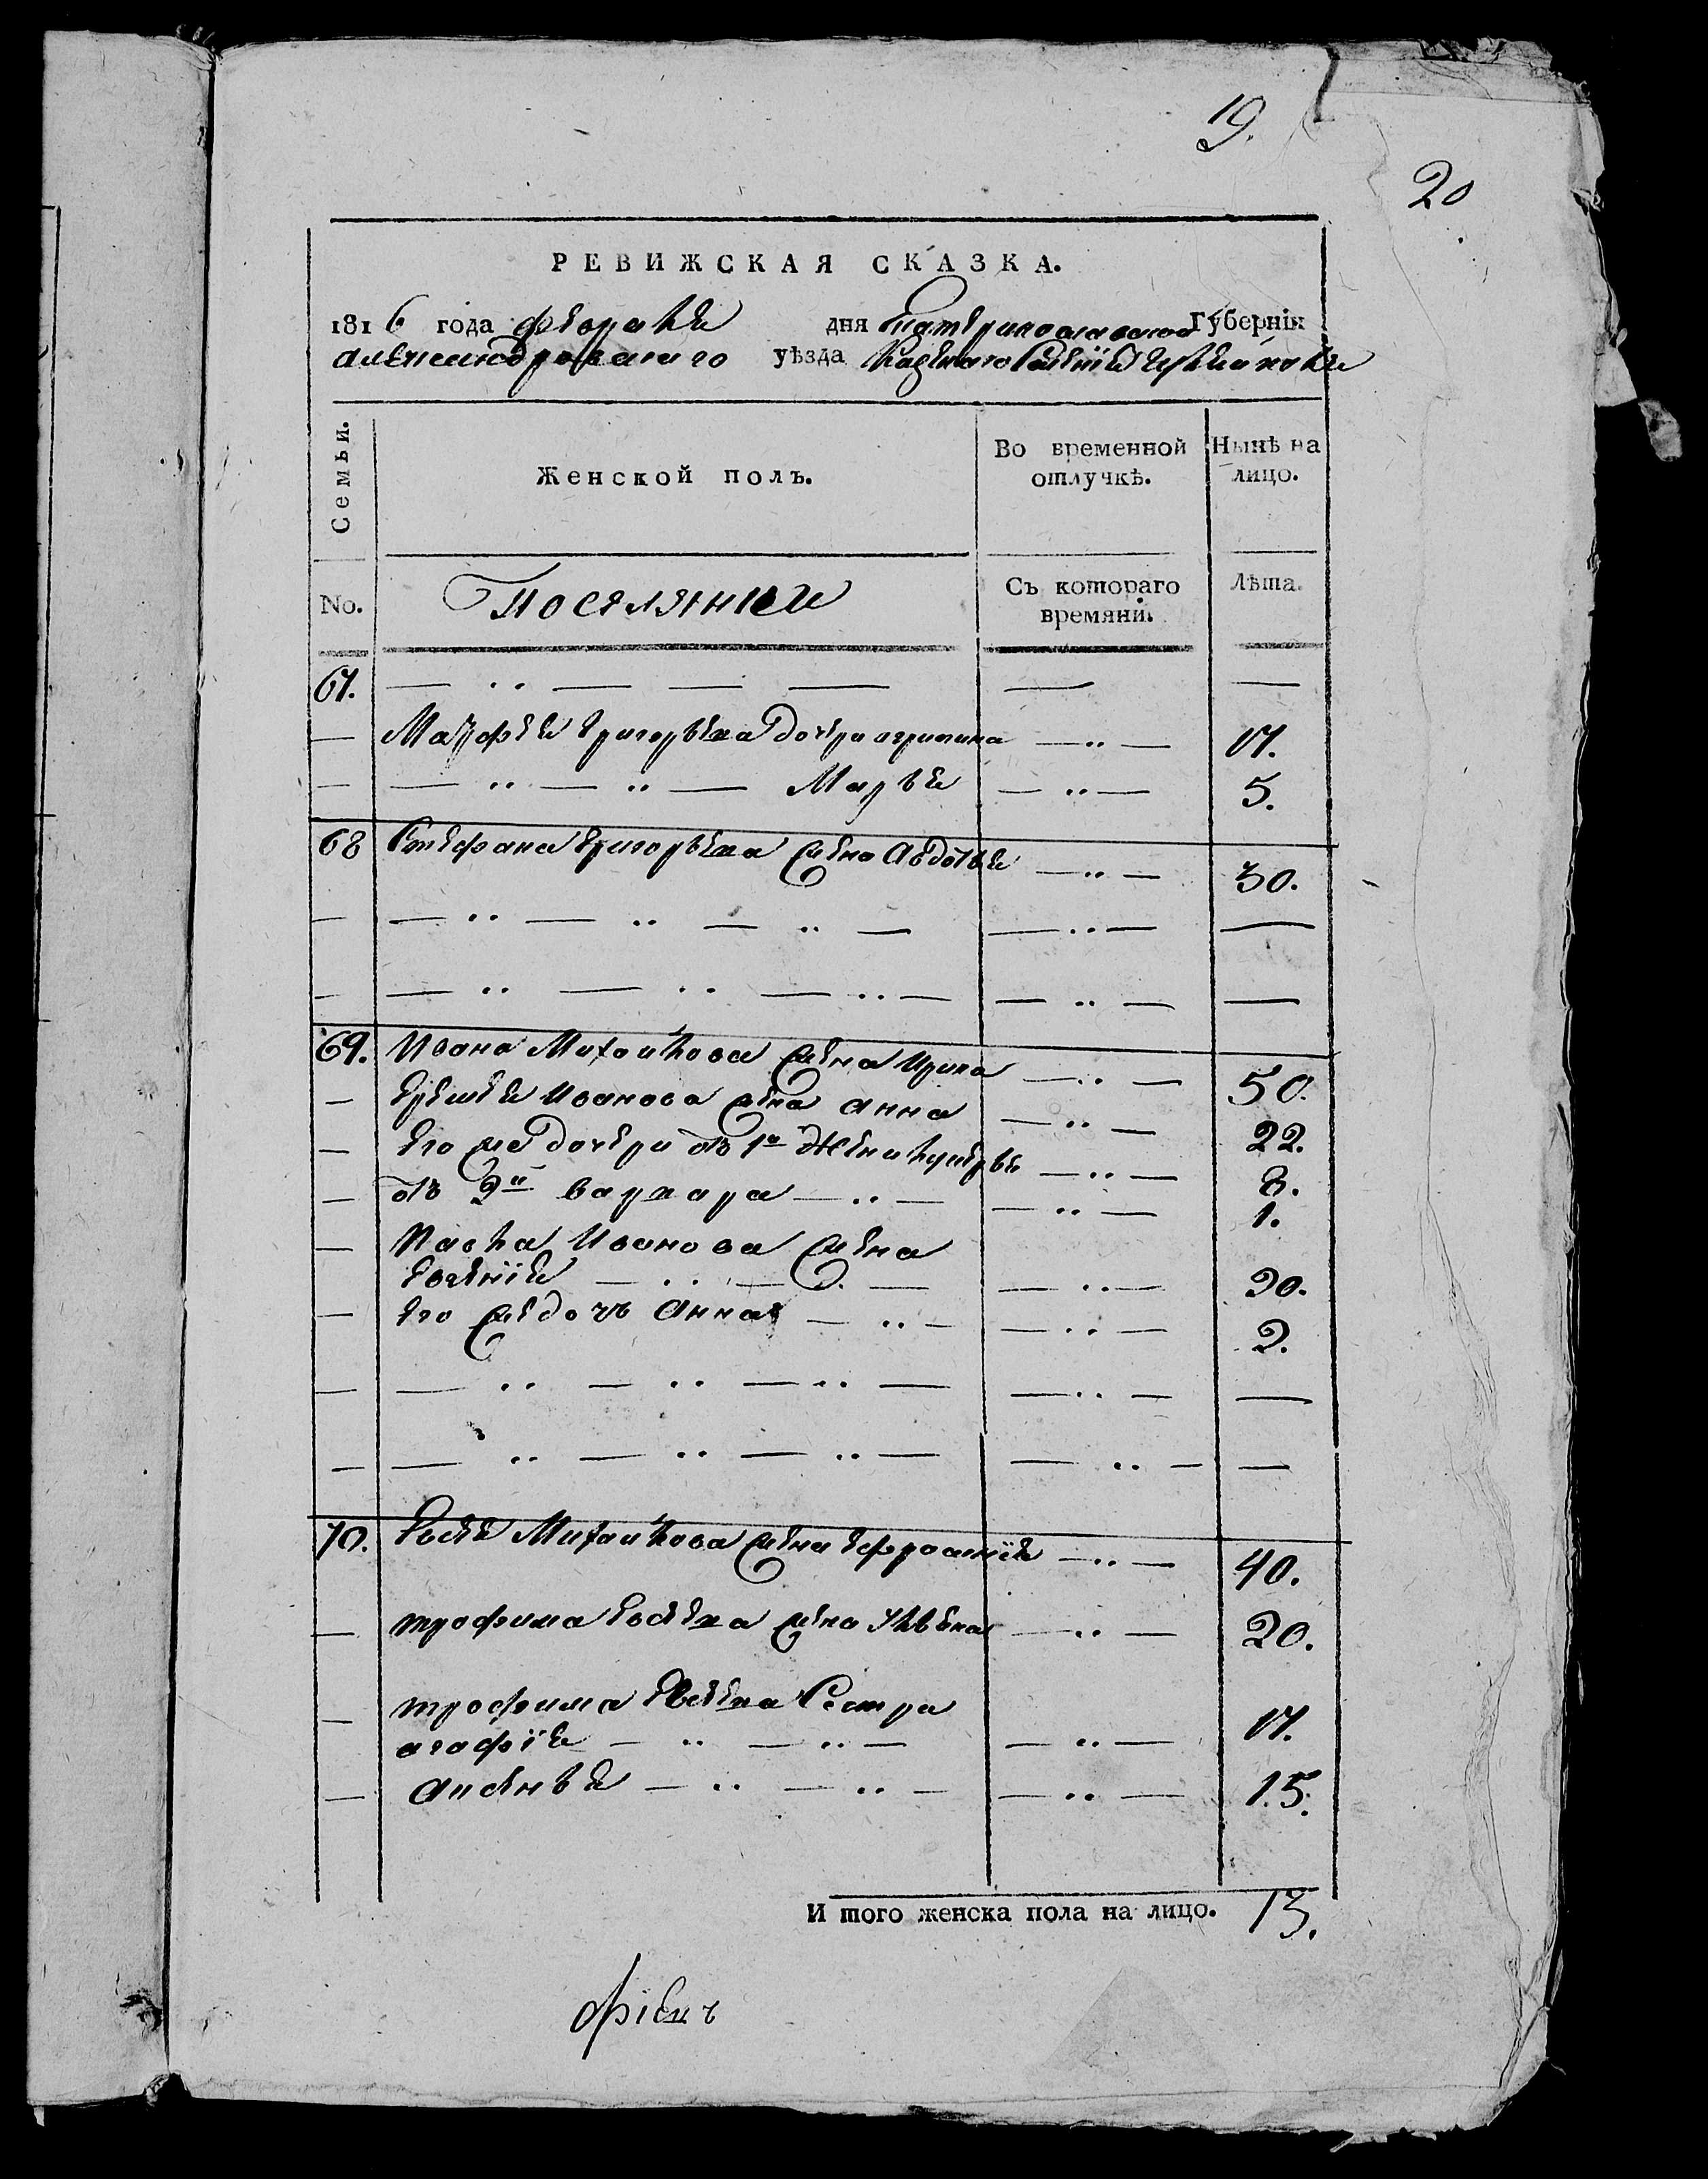 19.
20
РЕВИЖСКАЯ СКАЗКА.
1816 года февраля дня Екатеринославской Губерніи
александровскаго уѣзда Казенаго Селенія
Семьи.
Женской полъ.
Во временной отлучкѣ.
Нынѣ на лицо.
No.
Поселянки
Съ котораго времяни.
Лѣта.
67. — — —
— Матфея Григорьева дочери агрипина — 17.
— — Марья — 5.
68 Стефана Григорьева жена Авдотья — 30.
— — — —
— — — —
69. Ивана Михайлова жена Ирина — 50.
— Еремея Иванова жена анна — 22.
— Его же дочери отъ 1й жены — 8.
— отъ 2й варвара — 1.
— Павла Иванова жена
Евгенія — 20.
— Его же дочь Анна — 2.
— — — —
— — — —
70. Евсея Михайлова жена ефросинія — 40.
— трофима Евсеева жена Ульяна — 20.
— трофима Евсеева Сестра
агафія — 17.
— аксенья — 15.
И того женска пола на лицо. 13.